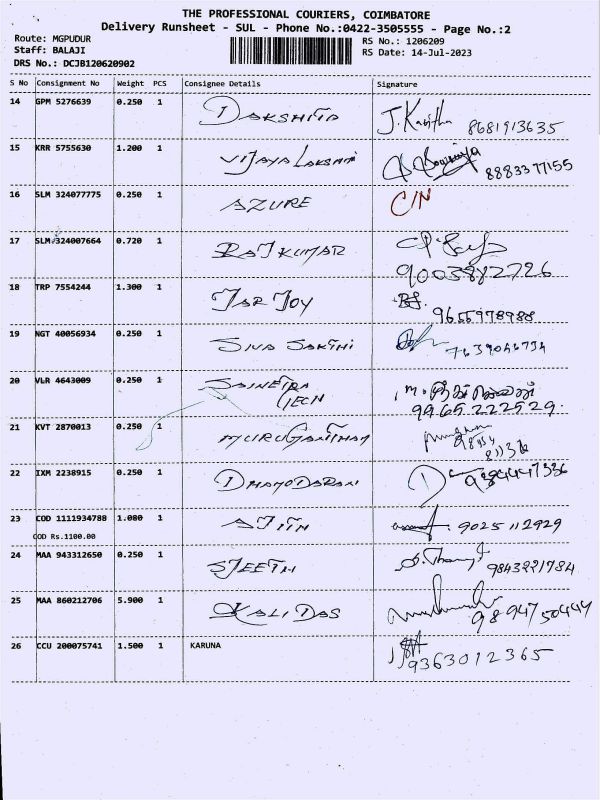 THE PROFESSIONAL COURIERS, COIMBATORE
Delivery Runsheet - SUL - Phone No.:0422-3505555 - Page No.:2
Route: MGPUDUR RS No.: 1206209
Staff: BALAJI RS Date: 14-Jul-2023
DRS No.: DCJB120620902
S No Consignment No Weight PCS Consignee Details Signature
14 GPM 5276639 0.250 1 DAKSHITA J. Kavitha 8681913635
15 KRR 5755630 1.200 1 VIJAYA LAKSHMI 8883377155
16 SLM 324077775 0.250 1 AZURE C/N
17 SLM 324007664 0.720 1 RAJKUMAR
9003872726
18 TRP 7554244 1.300 1 JOY 9655978988
19 NGT 40056934 0.250 1 SIVA SAKTHI 7639046734
20 VLR 4643009 0.250 1 SAINETRA
TECH 9965222529
21 KVT 2870013 0.250 1 MURUGANTHAM
22 IXM 2238915 0.250 1 DHAMODARAN
23 COD 1111934788 1.080 1 AJITH 9025112929
COD Rs.1100.00
24 MAA 943312650 0.250 1 SJEETH 9843221784
25 MAA 860212706 5.900 1 KALIDAS 9894750444
26 CCU 200075741 1.500 1 KARUNA 9363012365